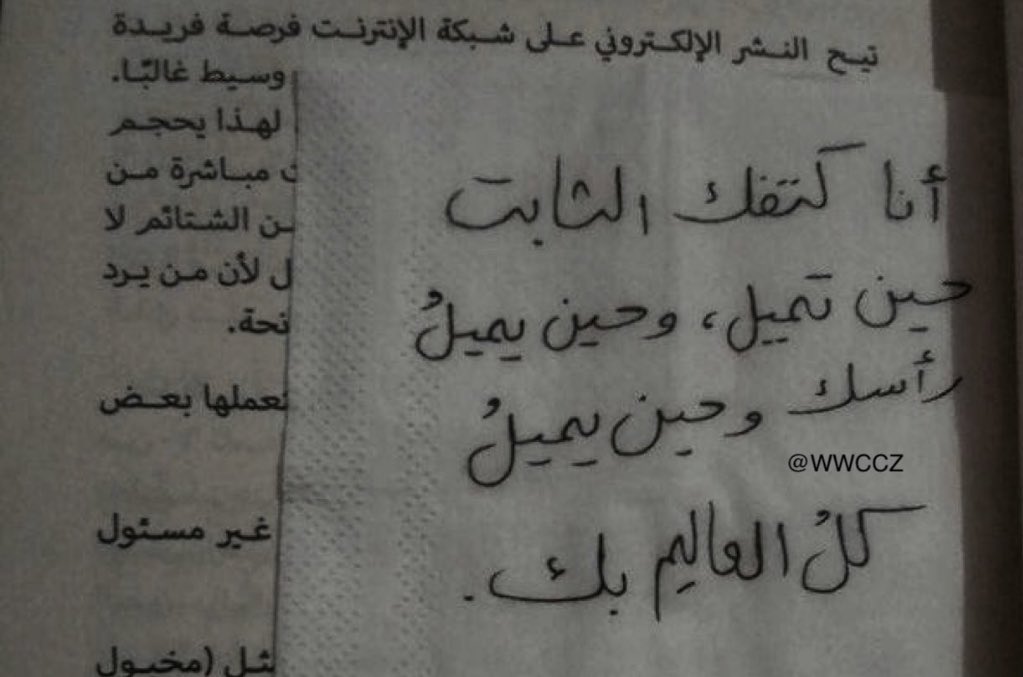 تيح النشر الإلكتروني على شبكة الإنترنت فرصة فريدة
وسيط غالبًا.
لهذا يحجم
مباشرة من
ـن الشتائم لا
ل لأن من يرد
نحة.
لعملها بعض
غير مسئول
ثل (مخبول
أنا كتفك الثابت
حين تميل، وحين يميلُ
رأسك وحين يميلُ
@WWCCZ
كلُ العالم بك.